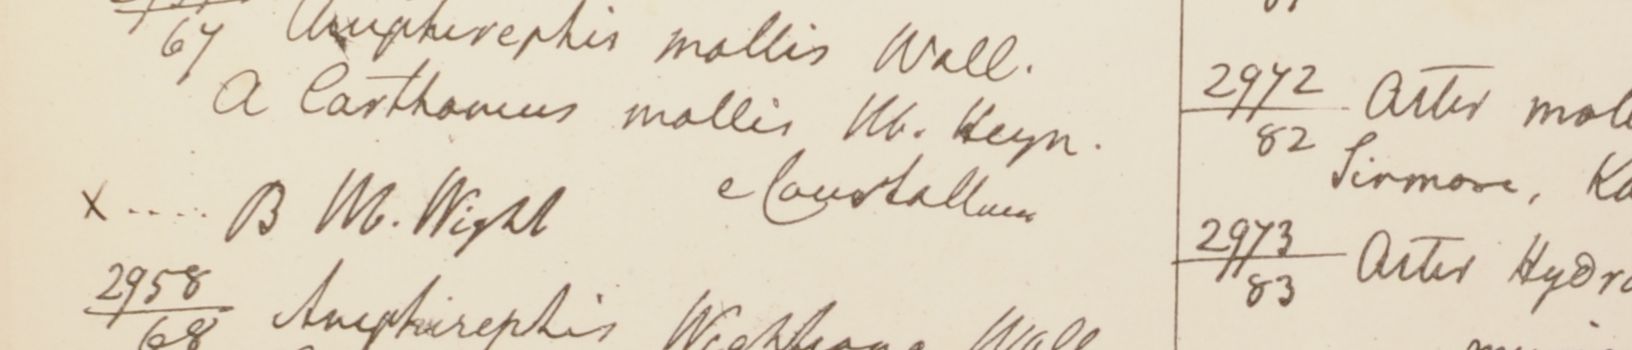 67 Amphirephis mollis Wall.
A Carthamus mollis Hb. Heyn.
e Courtallum
x ..... B Hb. Wight
2958
68 Amphirephis Wightiana Wall
2972
82 Aster mol
Sirmore, Ka
2973
83 Aster Hydro